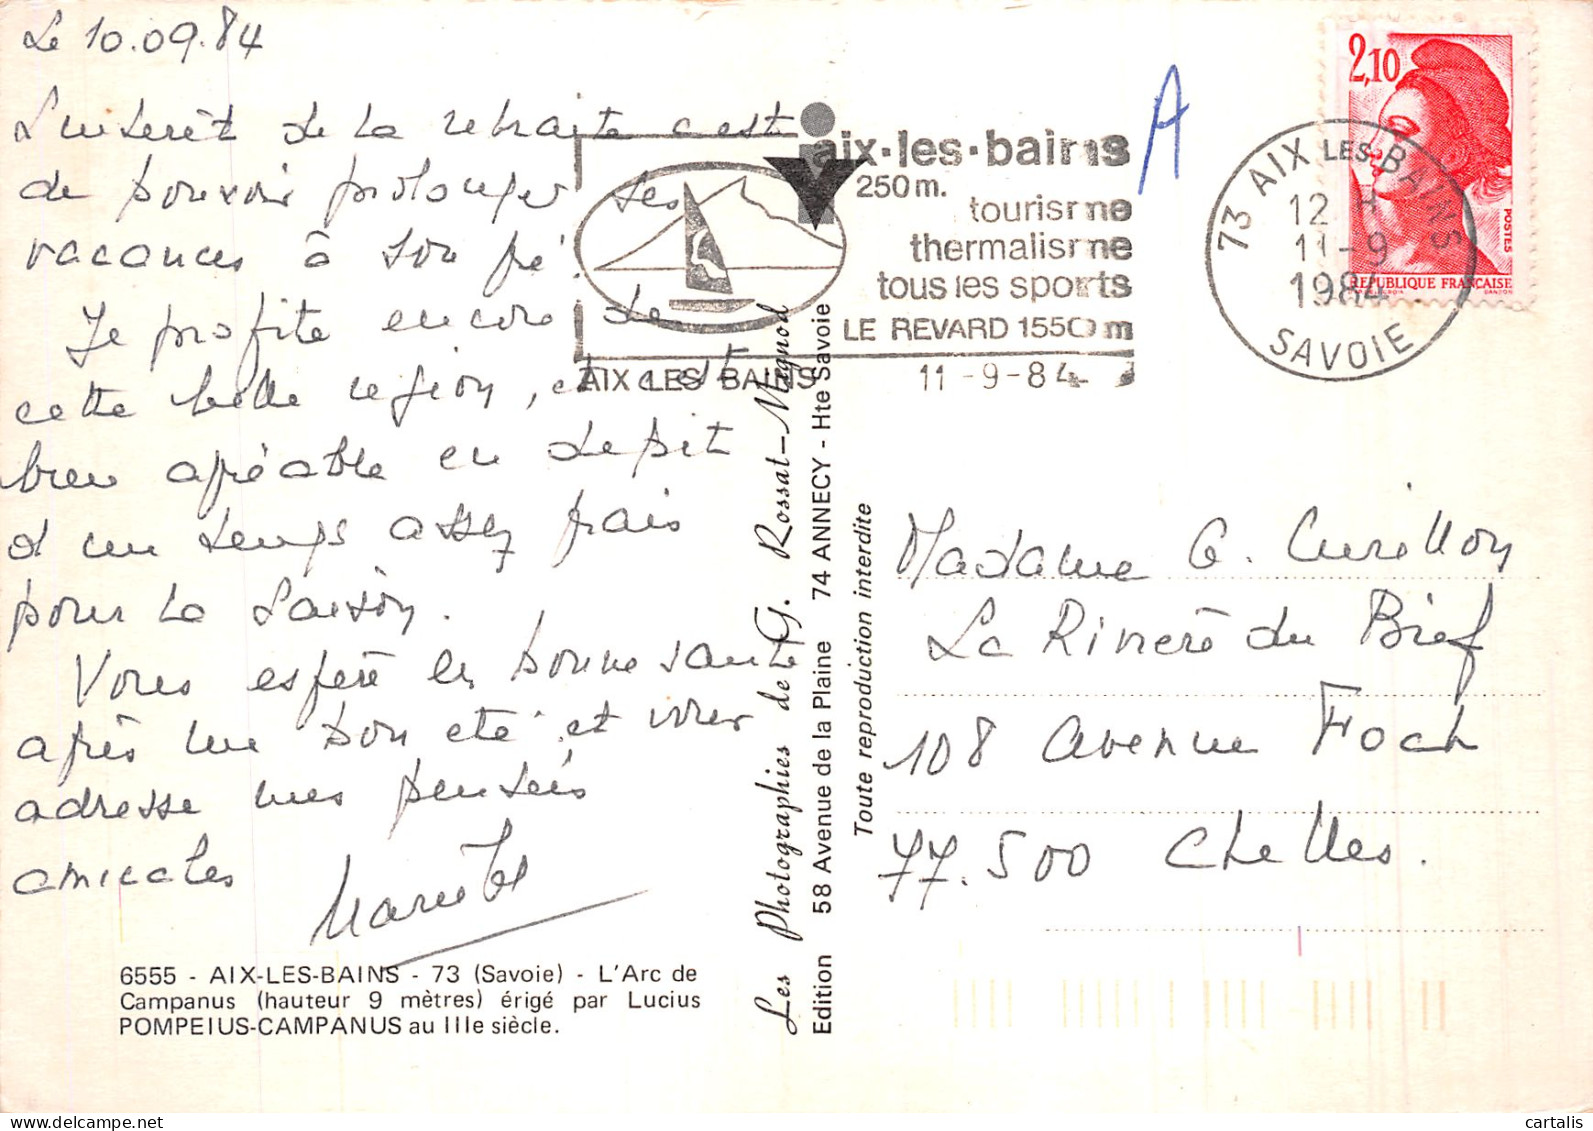 Le 10.09.84
L'intérêt de la retraite c'est
de pouvoir prolonger ses
vacances à son gré.
Je profite encore de
cette belle région, et c'est
bien agréable en dépit
d'un temps assez frais
pour la saison.
Vous espère en bonne santé
après un bon été et vous
adresse mes pensées
amicales
6555 - AIX-LES-BAINS - 73 (Savoie) - L'Arc de
Campanus (hauteur 9 mètres) érigé par Lucius
POMPEIUS-CAMPANUS au IIIe siècle.
Les Photographies de G. Rossat-Mignod
Edition 58 Avenue de la Plaine 74 ANNECY - Hte Savoie
Toute reproduction interdite
aix·les·bains
250m.
tourisme
thermalisme
tous les sports
LE REVARD 1550m
AIX LES BAINS
11-9-84
A
73 AIX LES BAINS
12 H
11-9
1984
SAVOIE
2,10
POSTES
REPUBLIQUE FRANÇAISE
Madame G. Curillon
La Rivière du Bief
108 avenue Foch
77.500 Chelles.
cartalis
delcampe.net